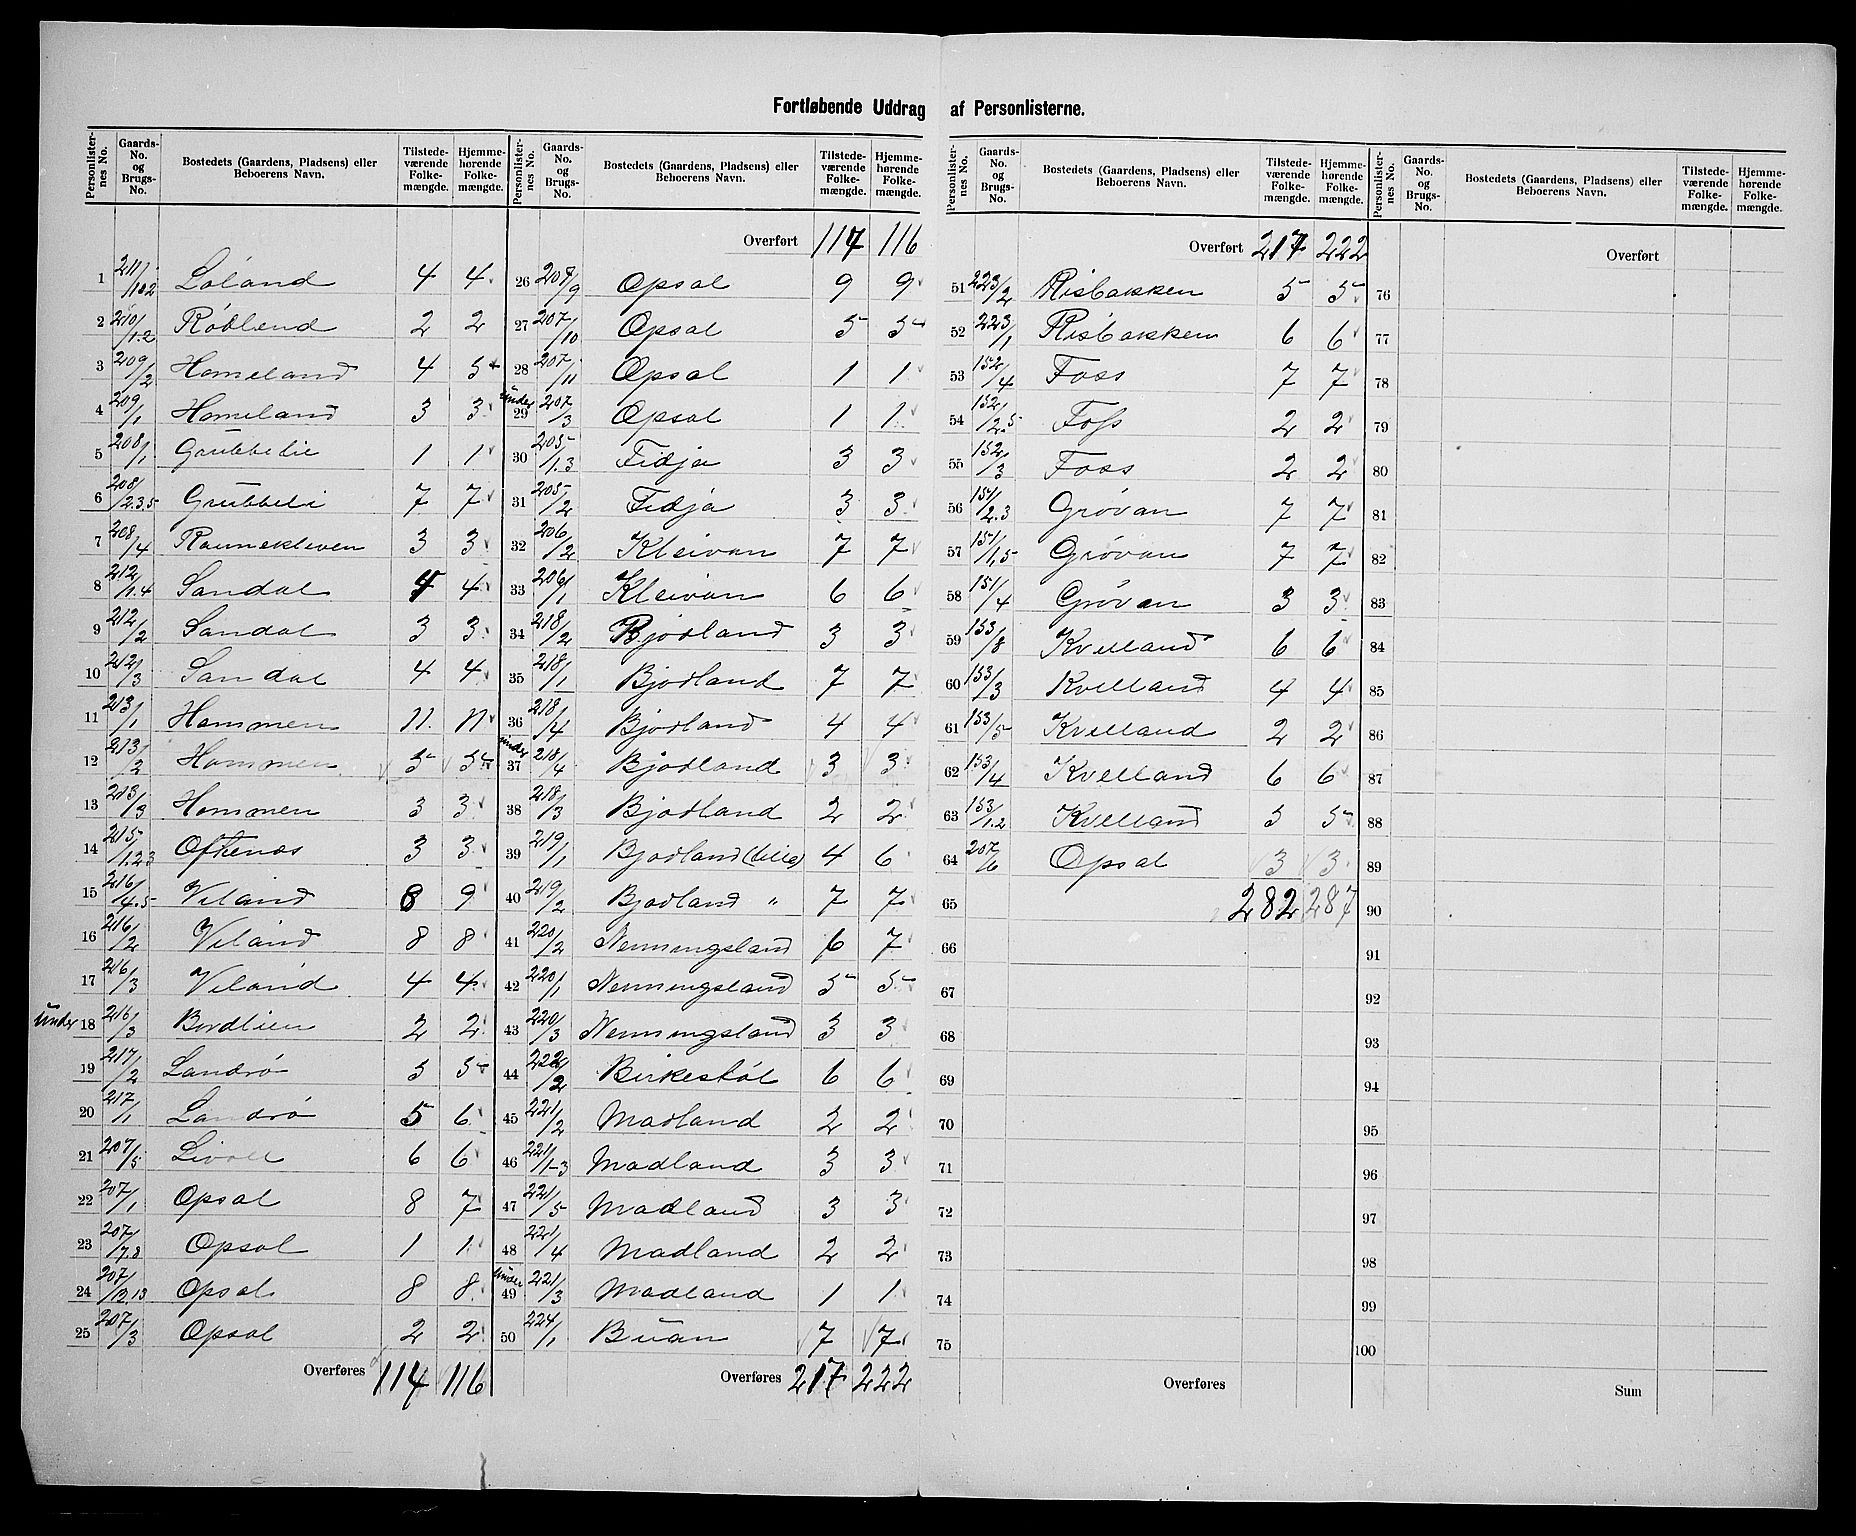 Fortløbende Uddrag af Personlisterne.
Personlister- nes No. | Gaards- No. og Brugs- No. | Bostedets (Gaardens, Pladsens) eller Beboerens Navn. | Tilstede- værende Folke- mængde. | Hjemme- hørende Folke- mængde.
1 211/1.2 Loland 4 4
2 210/1.2 Röbland 2 2
3 209/2 Homeland 4 5
4 209/1 Homeland 3 3
5 208/1 Grubbelie 1 1
6 208/2.3.5 Grubbeli 7 7
7 208/4 Raunekleven 3 3
8 212/1.4 Sandal 4 4
9 212/2 Sandal 3 3
10 212/3 Sandal 4 4
11 213/1 Hommen 11 11
12 213/2 Hommen 5 5
13 213/3 Hommen 3 3
14 215/1.2.3 Oftenes 3 3
15 216/4.5 Viland 8 9
16 216/2 Viland 8 8
17 216/3 Viland 4 4
under 18 216/3 Bordlien 2 2
19 217/2 Landrø 5 5
20 217/1 Landrø 5 6
21 207/5 Livoll 6 6
22 207/1 Opsal 8 7
23 207/7.8 Opsal 1 1
24 207/12.13 Opsal 8 8
25 207/3 Opsal 2 2
Overføres 114 116
Personlister- nes No. | Gaards- No. og Brugs- No. | Bostedets (Gaardens, Pladsens) eller Beboerens Navn. | Tilstede- værende Folke- mængde. | Hjemme- hørende Folke- mængde.
Overført 114 116
26 207/9 Opsal 9 9
27 207/10 Opsal 5 5
28 207/11 Opsal 1 1
under 29 207/3 Opsal 1 1
30 205/1.3 Fidja 3 3
31 205/2 Fidja 3 3
32 206/2 Kleivan 7 7
33 206/1 Kleivan 6 6
34 218/2 Bjodland 3 3
35 218/1 Bjodland 7 7
36 218/4 Bjodland 4 4
under 37 218/4 Bjodland 3 3
38 218/3 Bjodland 2 2
39 219/1 Bjodland (lille) 4 6
40 219/2 Bjodland " 7 7
41 220/2 Nenningsland 6 7
42 220/1 Nenningsland 5 5
43 220/3 Nenningsland 3 3
44 222/2 Birkestøl 6 6
45 221/2 Madland 2 2
46 221/1-3 Madland 3 3
47 221/5 Madland 3 3
48 221/4 Madland 2 2
under 49 221/3 Madland 1 1
50 224/1 Buan 7 7
Overføres 217 222
Personlister- nes No. | Gaards- No. og Brugs- No. | Bostedets (Gaardens, Pladsens) eller Beboerens Navn. | Tilstede- værende Folke- mængde. | Hjemme- hørende Folke- mængde.
Overført 217 222
51 223/2 Risbakken 5 5
52 223/1 Risbakken 6 6
53 152/4 Foss 7 7
54 152/2.5 Foss 2 2
55 152/3 Foss 2 2
56 151/2.3 Grövan 7 7
57 151/1.5 Grövan 7 7
58 151/4 Grövan 3 3
59 153/8 Kvelland 6 6
60 153/3 Kvelland 4 4
61 153/5 Kvelland 2 2
62 153/4 Kvelland 6 6
63 153/1.2 Kvelland 5 5
64 207/6 Opsal 3 3
65 282 287
66
67
68
69
70
71
72
73
74
75
Overføres
Personlister- nes No. | Gaards- No. og Brugs- No. | Bostedets (Gaardens, Pladsens) eller Beboerens Navn. | Tilstede- værende Folke- mængde. | Hjemme- hørende Folke- mængde.
Overført
76
77
78
79
80
81
82
83
84
85
86
87
88
89
90
91
92
93
94
95
96
97
98
99
100
Sum